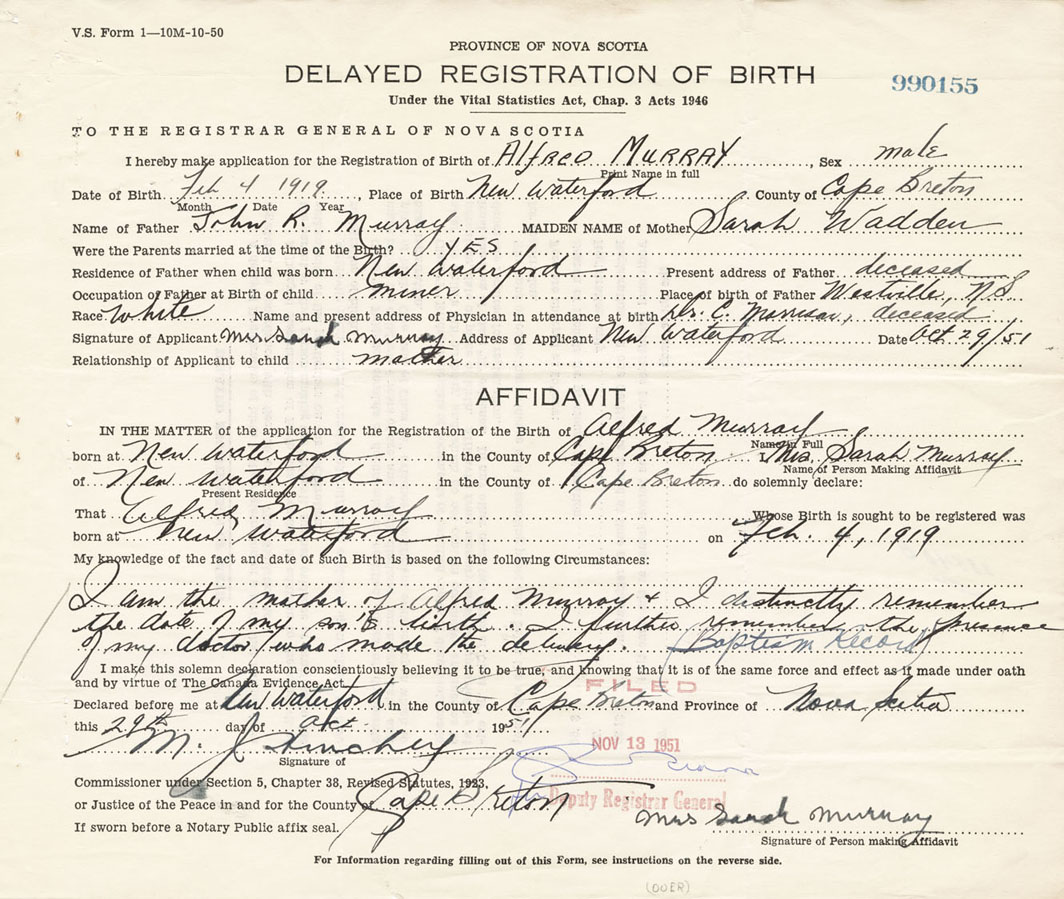 V.S. Form 1—10M-10-50
PROVINCE OF NOVA SCOTIA
DELAYED REGISTRATION OF BIRTH
990155
Under the Vital Statistics Act, Chap. 3 Acts 1946
TO THE REGISTRAR GENERAL OF NOVA SCOTIA
I hereby make application for the Registration of Birth of Alfred Murray, Sex male
Print Name in full
Date of Birth Feb 4 1919, Place of Birth New Waterford County of Cape Breton
Month Date Year
Name of Father John R. Murray MAIDEN NAME of Mother Sarah Wadden
Were the Parents married at the time of the Birth? YES
Residence of Father when child was born New Waterford Present address of Father deceased
Occupation of Father at Birth of child miner Place of birth of Father Westville, N.S.
Race White Name and present address of Physician in attendance at birth Dr. C. Morrison, deceased
Signature of Applicant Mrs Sarah Murray Address of Applicant New Waterford Date Oct 29/51
Relationship of Applicant to child mother
AFFIDAVIT
IN THE MATTER of the application for the Registration of the Birth of Alfred Murray
Name in Full
born at New Waterford in the County of Cape Breton I, Mrs. Sarah Murray
Name of Person Making Affidavit
of New Waterford in the County of Cape Breton do solemnly declare:
Present Residence
That Alfred Murray Whose Birth is sought to be registered was
born at New Waterford on Feb. 4, 1919
My knowledge of the fact and date of such Birth is based on the following Circumstances:
I am the mother of Alfred Murray & I distinctly remember
the date of my son's birth. I further remember the presence
of my doctor who made the delivery. Baptism Record
I make this solemn declaration conscientiously believing it to be true, and knowing that it is of the same force and effect as if made under oath
and by virtue of The Canada Evidence Act.
FILED
Declared before me at New Waterford in the County of Cape Breton and Province of Nova Scotia
this 29th day of Oct 1951
M. J. Hinchey
NOV 13 1951
Signature of
Commissioner under Section 5, Chapter 38, Revised Statutes, 1923,
or Justice of the Peace in and for the County of Cape Breton
Deputy Registrar General
If sworn before a Notary Public affix seal.
Mrs Sarah Murray
Signature of Person making Affidavit
For Information regarding filling out of this Form, see instructions on the reverse side.
(DOER)